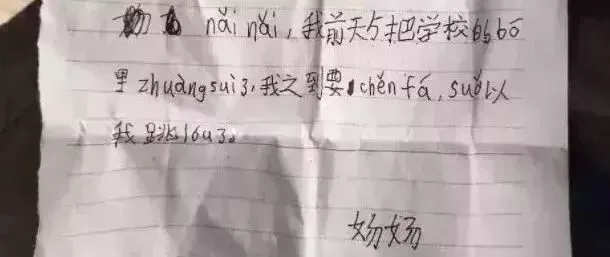 nǎi nǎi，我前天与把学校的bō
里zhuàngsuì了，我之到要chěnfá，suǒ以
我跳lóu了。
妫妫